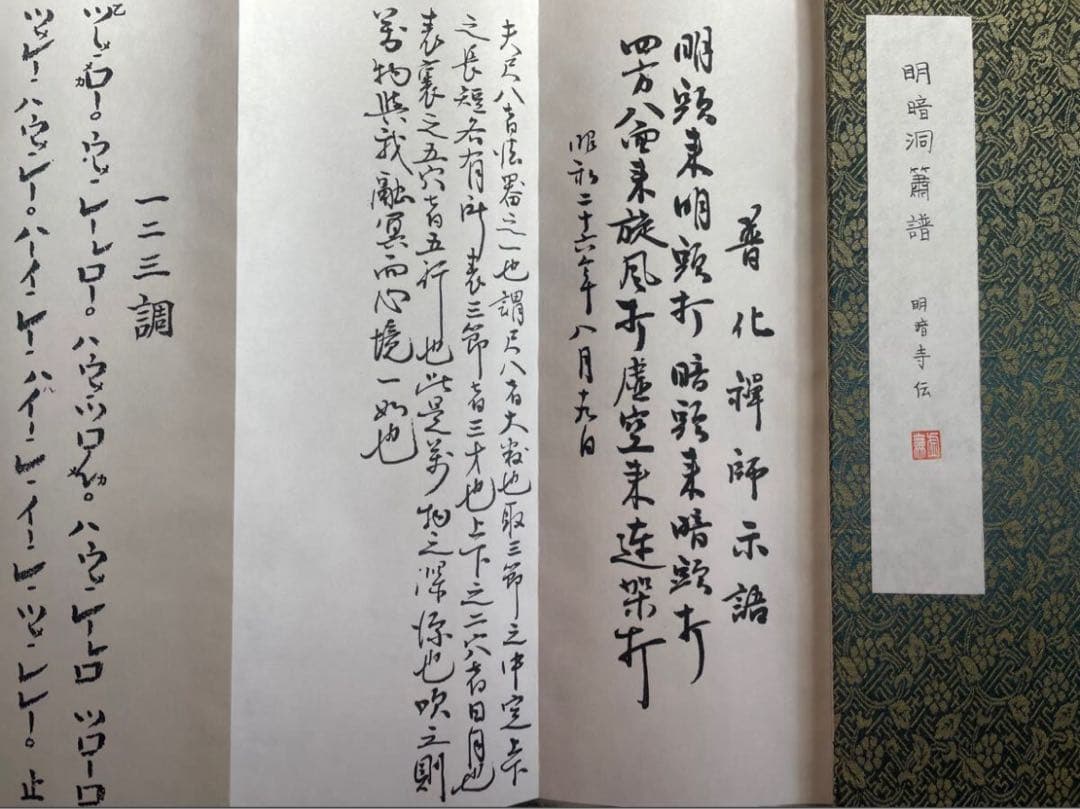 明暗洞簫譜　明暗寺伝
普化禪師示語
明頭来明頭打暗頭来暗頭打
四方八面来旋風打虚空来連架打
昭和二十六年八月十九日
夫尺八者法器之一也謂尺八者大数也取三節之中定上下
之長短各有所表三節者三才也上下之二穴者日月也
表裏之五穴者五行也此是萬物之深源也吹之則
萬物與我融冥而心境一如也
一二三調
乙ツレーロー。ウレーレロー。ハウツロ。ハウレーロツローロ
ツレーハウレー。ハーイレーハイーレイーレツレレー。止